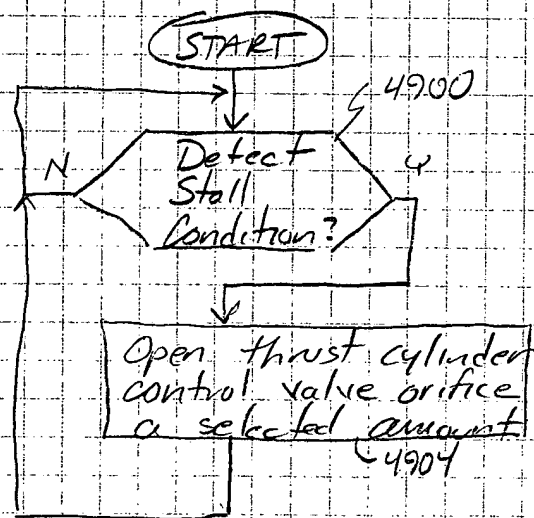 START
4900
N
Y
Detect
Stall
Condition?
Open thrust cylinder
control valve orifice
a selected amount
4904